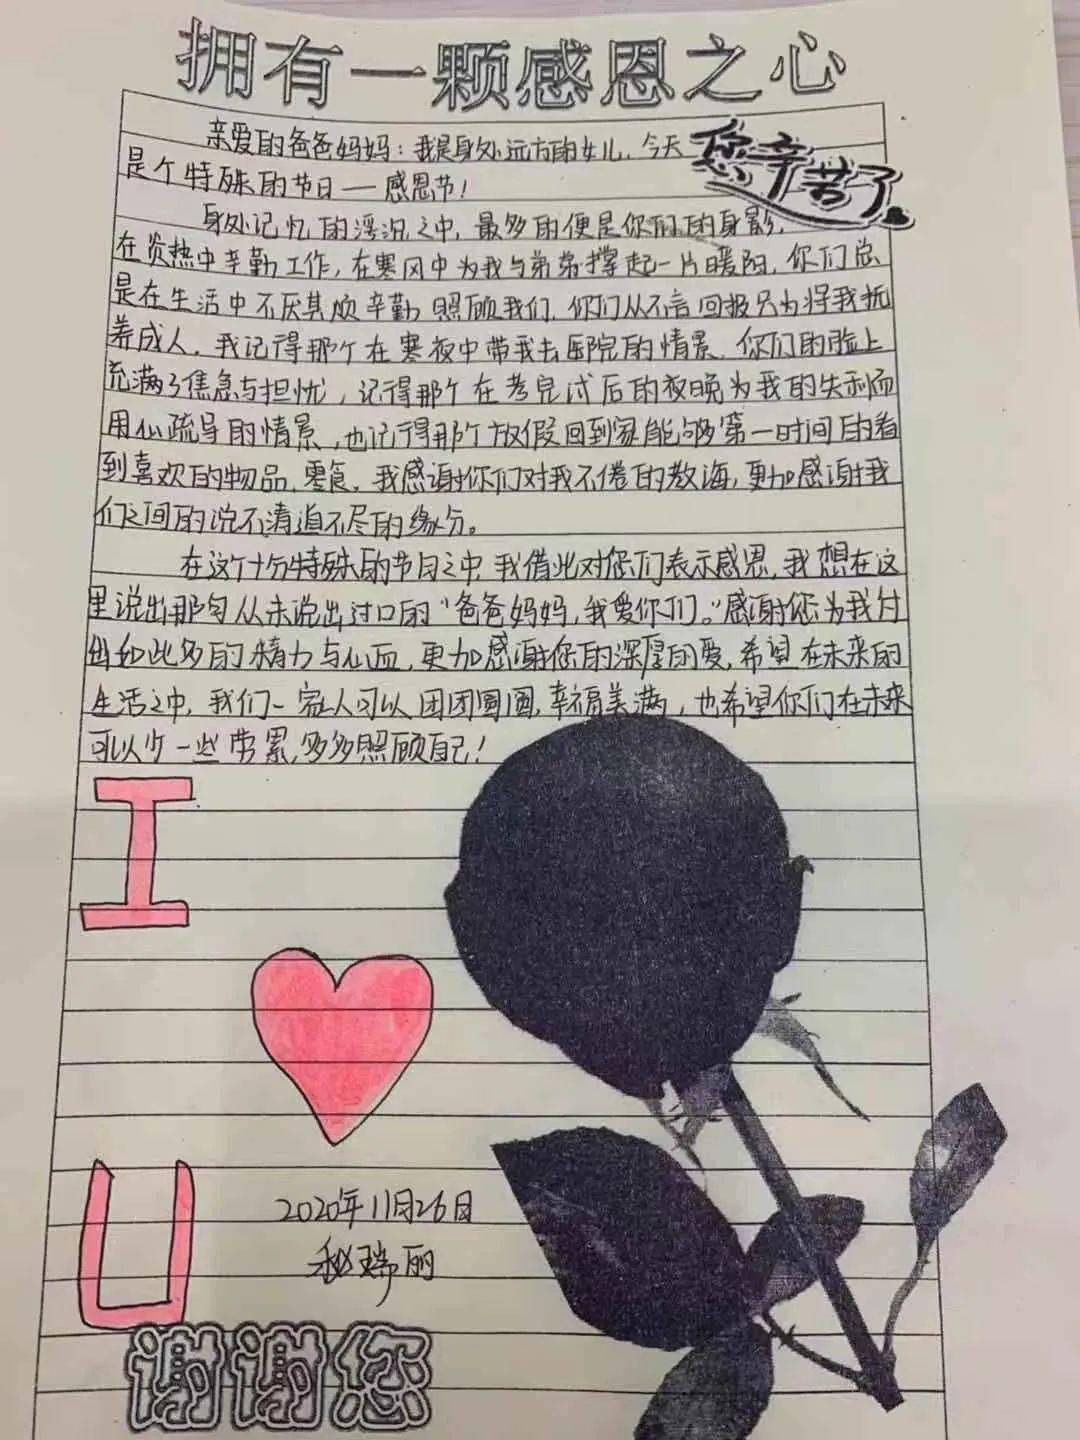 拥有一颗感恩之心
亲爱的爸爸妈妈：我是身处远方的女儿，今天
您辛苦了
是个特殊的节日——感恩节！
身处记忆的浮沉之中，最多的便是你们的身影，
在炎热中辛勤工作，在寒风中为我与弟弟撑起一片暖阳，你们总
是在生活中不厌其烦辛勤照顾我们，你们从不言回报只为将我抚
养成人，我记得那个在寒夜中带我去医院的情景，你们的脸上
充满了焦急与担忧，记得那个在考完试后的夜晚为我的失利而
用心疏导的情景，也记得那个放假回到家能够第一时间的看
到喜欢的物品，零食，我感谢你们对我不倦的教海，更加感谢我
们之间的说不清道不尽的缘分。
在这个十分特殊的节日之中，我借此对您们表示感恩，我想在这
里说出那句从未说出过口的“爸爸妈妈，我爱你们。”感谢您为我付
出如此多的精力与心血，更加感谢您的深厚的爱，希望在未来的
生活之中，我们一家人可以团团圆圆，幸福美满，也希望你们在未来
可以少一些劳累，多多照顾自己！
I
U
2020年11月26日
秘瑞丽
谢谢您